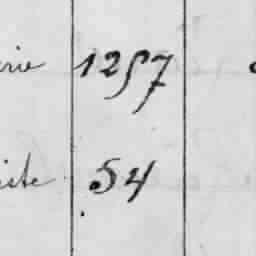 rie 1257
ite 54